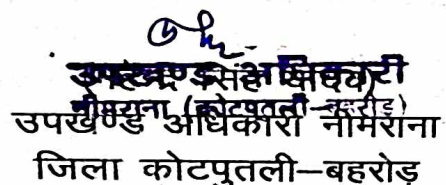 उपखण्ड अधिकारी
नीमराना (कोटपुतली-बहरोड़)
उपखण्ड अधिकारी नीमराना
जिला कोटपुतली–बहरोड़